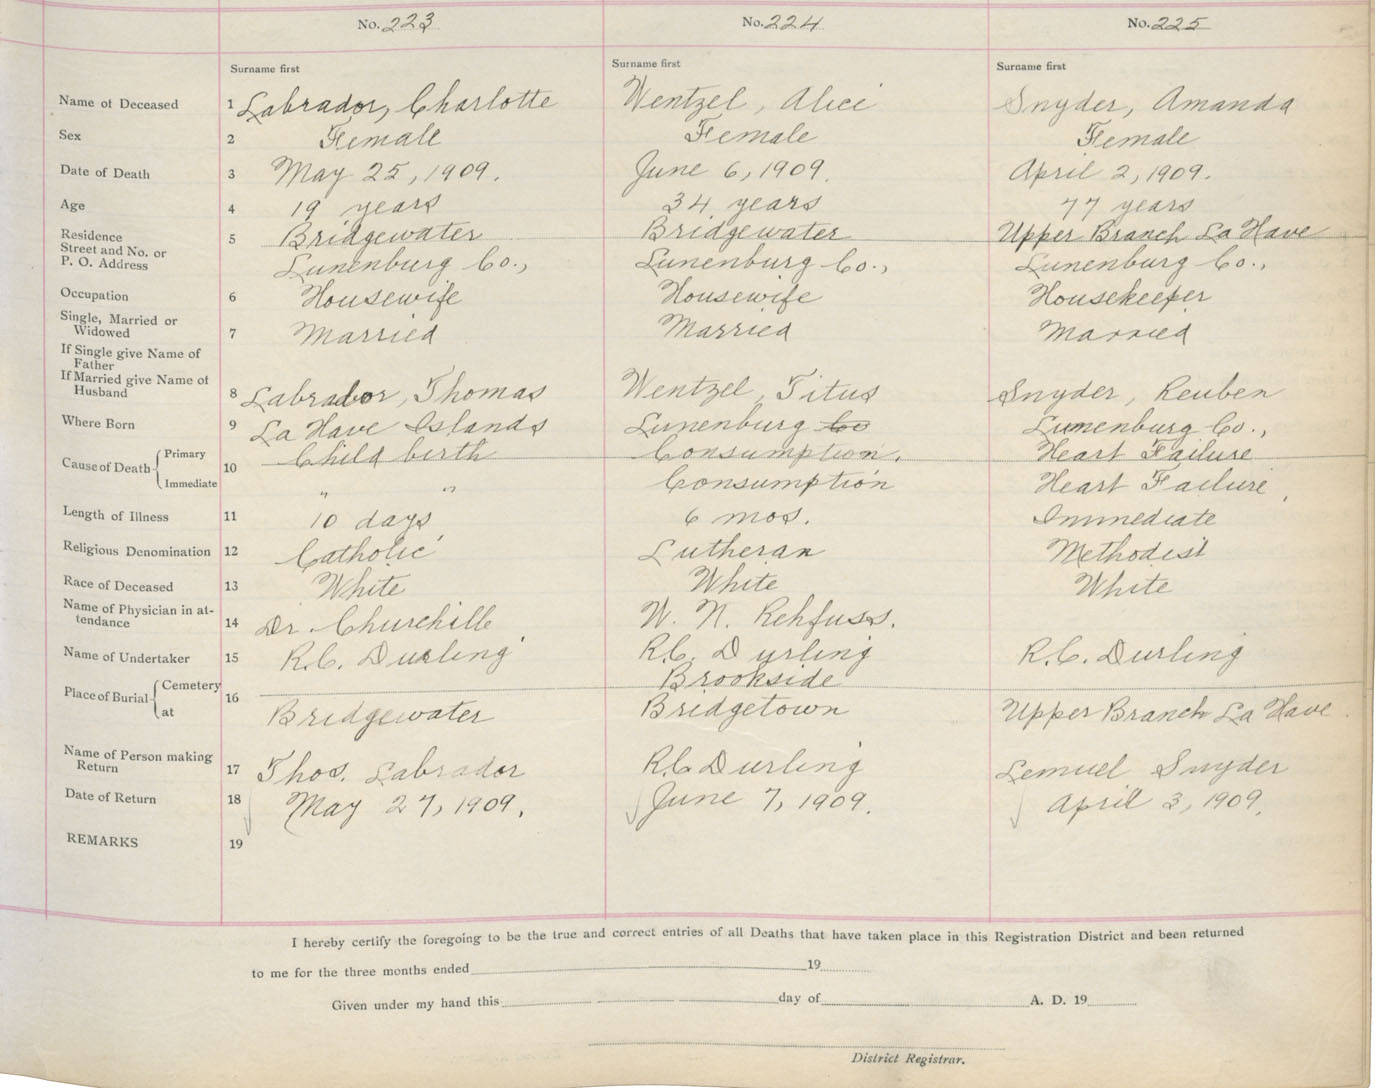 No. 223 No. 224 No. 225
Surname first Surname first Surname first
Name of Deceased 1 Labrador, Charlotte Wentzel, Alice Snyder, Amanda
Sex 2 Female Female Female
Date of Death 3 May 25, 1909. June 6, 1909. April 2, 1909.
Age 4 19 years 34 years 77 years
Residence
Street and No. or
P. O. Address
5 Bridgewater Bridgewater Upper Branch La Have
Lunenburg Co., Lunenburg Co., Lunenburg Co.,
Occupation 6 Housewife Housewife Housekeeper
Single, Married or
Widowed
7 Married Married Married
If Single give Name of
Father
If Married give Name of
Husband
8 Labrador, Thomas Wentzel, Titus Snyder, Reuben
Where Born 9 La Have Islands Lunenburg Co Lunenburg Co.,
Cause of Death Primary 10 Child birth Consumption. Heart Failure
Immediate " " Consumption Heart Failure,
Length of Illness 11 10 days 6 mos. Immediate
Religious Denomination 12 Catholic Lutheran Methodist
Race of Deceased 13 White White White
Name of Physician in at-
tendance
14 Dr. Churchille W. N. Rehfuss.
Name of Undertaker 15 R.C. Durling R.C. Durling R.C. Durling
Place of Burial Cemetery 16 Brookside
at Bridgewater Bridgetown Upper Branch La Have.
Name of Person making
Return
17 Thos. Labrador R.C. Durling Lemuel Snyder
Date of Return 18 May 27, 1909. June 7, 1909. April 3, 1909.
REMARKS 19
I hereby certify the foregoing to be the true and correct entries of all Deaths that have taken place in this Registration District and been returned
to me for the three months ended 19
Given under my hand this day of A. D. 19
District Registrar.